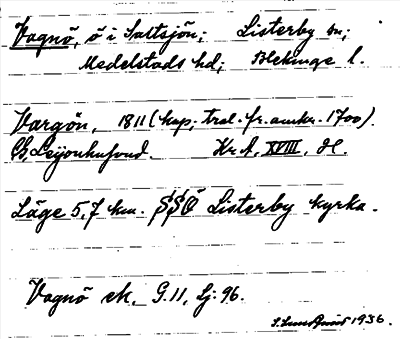 Vagnö, ö i Saltsjön; Listerby sn;
Medelstads hd; Blekinge l.
Vargön, 1811 (kop. trol. fr. omkr. 1700).
C. G. Leijonhufvud. Kr. A. XVIII, H.
Läge 5,7 km. SSÖ Listerby kyrka.
Vagnö ek, G. 11, Lj: 96.
1936.